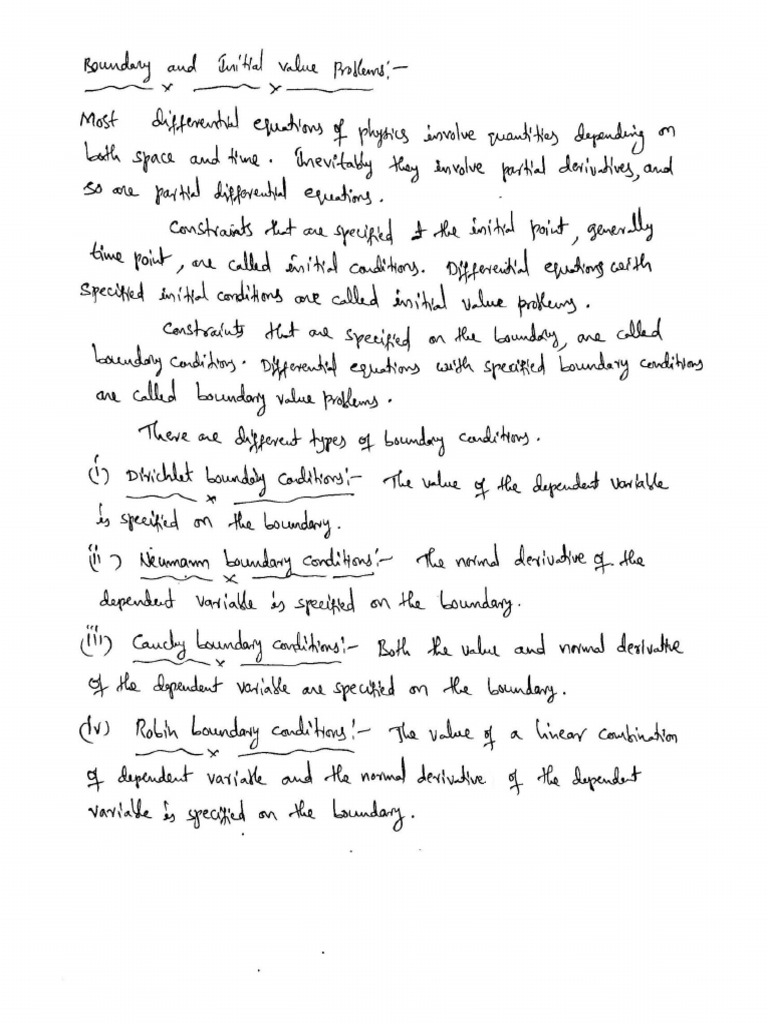 Boundary and Initial value Problems:-
Most differential equations of physics involve quantities depending on
both space and time. Inevitably they involve partial derivatives, and
so are partial differential equations.
Constraints that are specified at the initial point, generally
time point, are called initial conditions. Differential equations with
specified initial conditions are called initial value problems.
Constraints that are specified on the boundary, are called
boundary conditions. Differential equations with specified boundary conditions
are called boundary value problems.
There are different types of boundary conditions.
(i) Dirichlet boundary conditions:- The value of the dependent variable
is specified on the boundary.
(ii) Neumann boundary conditions:- The normal derivative of the
dependent variable is specified on the boundary.
(iii) Cauchy boundary conditions:- Both the value and normal derivative
of the dependent variable are specified on the boundary.
(iv) Robin boundary conditions:- The value of a linear combination
of dependent variable and the normal derivative of the dependent
variable is specified on the boundary.